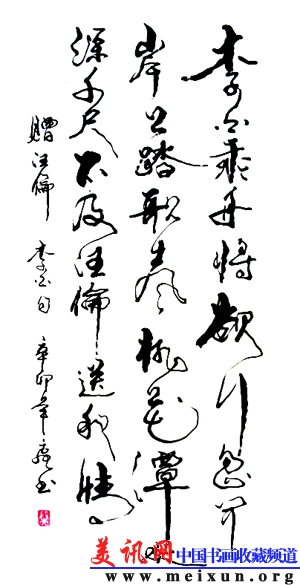 李白乘舟将欲行忽闻
岸上踏歌声桃花潭水
深千尺不及汪倫送我情
贈汪倫 李白句 辛卯年 书
美讯网
中国书画收藏频道
www.meixun.org